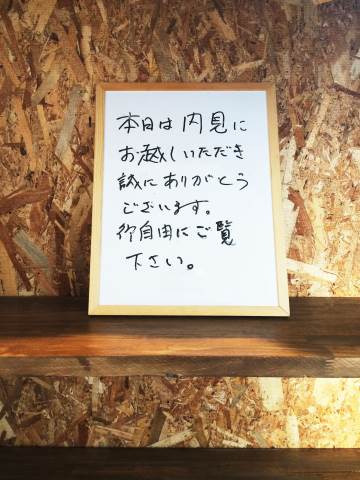 本日は内見に
お越しいただき
誠にありがとう
ございます。
御自由にご覧
下さい。